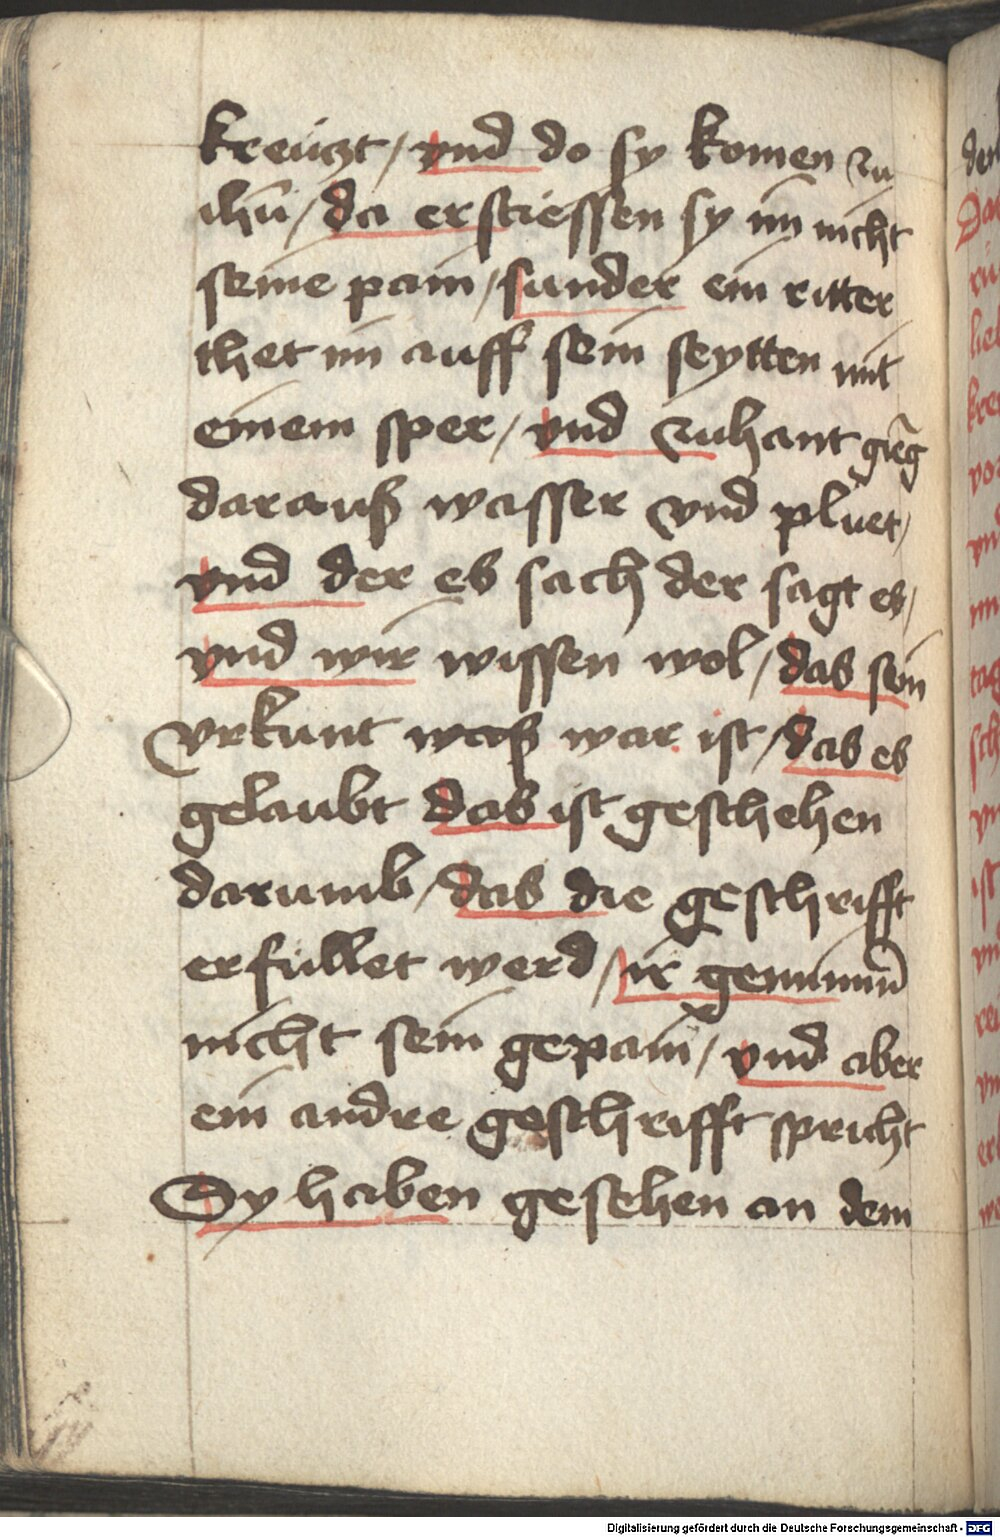 kreützt / vnd do sy komen zu
ihū / da erstiessen sy im nicht
seine pain / sunder ein ritter
thet im auff sein seytten mit
einem sper / vnd zuhant gieg
darauß wasser vnd plüet /
vnd der es sach der sagt es /
vnd wir wissen wol / das sein
vrkunt waß war ist / das es
gelaubt das ist geschehen
darumb / das die geschrifft
erfullet werd / ir gemimmū
nicht sein gepain / vnd aber
ein andre geschrifft spricht
Sy haben gesehen an dem
Digitalisierung gefördert durch die Deutsche Forschungsgemeinschaft - DFG